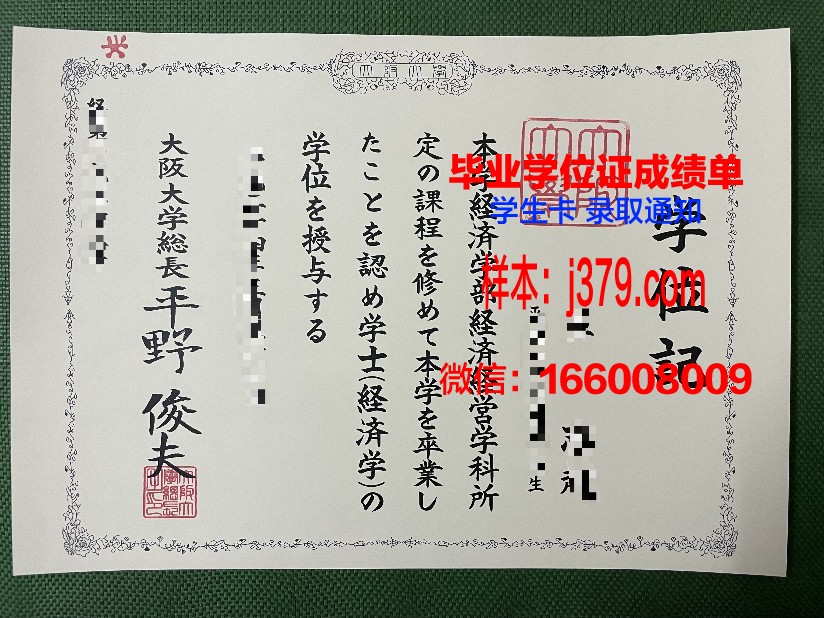 学位記
生
本学経済学部経済経営学科所
定の課程を修めて本学を卒業し
たことを認め学士(経済学)の
学位を授与する
大阪大学総長 平野 俊夫
毕业学位证成绩单
学生卡 录取通知
样本：j379.com
微信：166008009